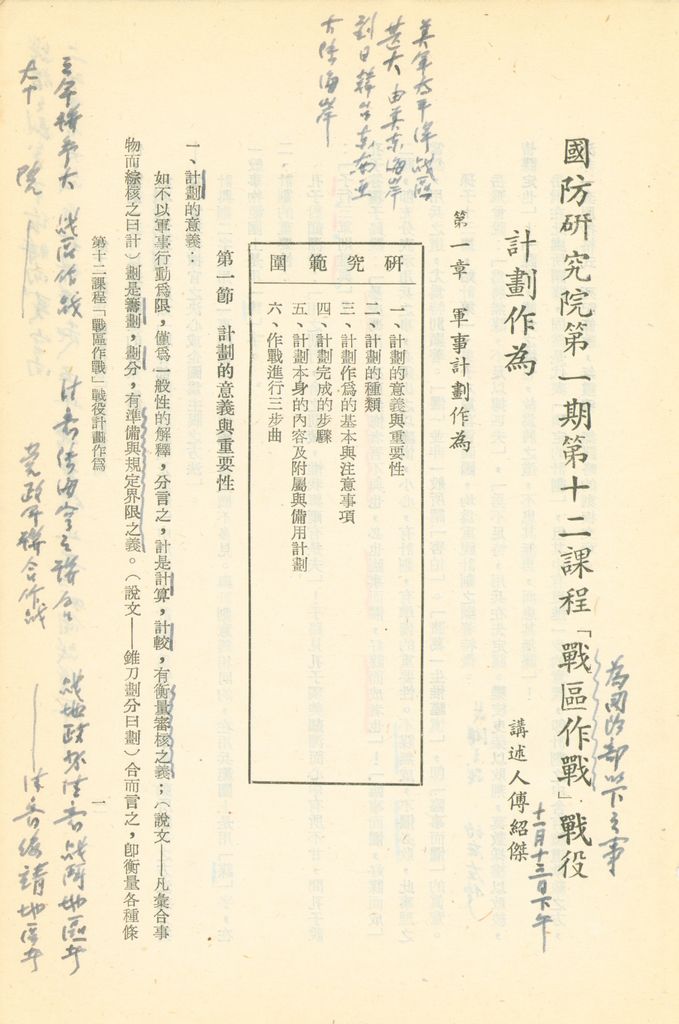 國防研究院第一期第十二課程「戰區作戰」戰役
計劃作為
講述人傅紹傑
十一月十三日下午
為國防部以下之事
美軍太平洋戰區
甚大 由美東海岸
到日韓台東南亞
大陸海岸
第一章 軍事計劃作為
研究範圍
一、計劃的意義與重要性
二、計劃的種類
三、計劃作爲的基本與注意事項
四、計劃完成的步驟
五、計劃本身的內容及附屬與備用計劃
六、作戰進行三步曲
第一節 計劃的意義與重要性
一、計劃的意義：
如不以軍事行動爲限，僅爲一般性的解釋，分言之，計是計算，計較，有衡量審核之義；（說文——凡彙合事
物而綜核之曰計）劃是籌劃，劃分，有準備與規定界限之義。（說文——錐刀劃分曰劃）合而言之，卽衡量各種條
第十二課程「戰區作戰」戰役計劃作爲
一
戰區作戰
陸海空之聯合
戰地政務
黨政軍聯合作戰